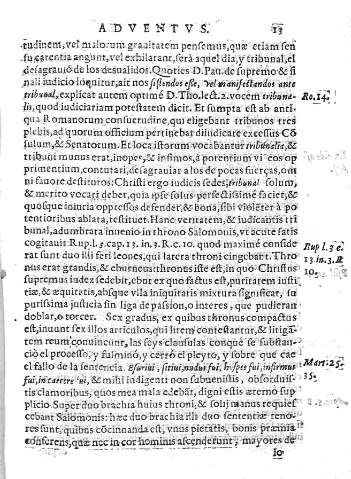 ADVENTVS. 13
tudinem, vel malorum grauitatem pensemus, quæ etiam sen
su carentia angunt, vel exhilarant, serà aquel dia, y tribunal, el
desagrauio de los desualidos. Quoties D. Pau. de supremo & fi
nali iudicio loquitur, ait nos sistendos esse, vel manifestandos ante
tribunal, explicat autem optimè D. Tho. lect. 2. vocem tribuna-
lis, quod iudiciariam potestatem dicit. Et sumpta est ab anti-
qua Romanorum consuetudine, qui eligebant tribunos tres
plebis, ad quorum officium pertinebat diiudicare excessus Cō
sulum, & Senatorum. Et loca istorum vocabantur tribunalia, &
tribuni munus erat, inopes, & infimos, à potentium vi eos op
primentium, contutari, desagrauiar a los de pocas fuerças, om
ni fauore destitutos: Christi ergo iudicis sedes, tribunal solum,
& merito vocari debet, quia ipse solus perfectissimè faciet, &
quosque iniuria oppressos defendet, & bona, sibi violēter à po
tentioribus ablata, restituet. Hanc veritatem, & iudicantis tri
bunal, adumbrata inuenio in throno Salomonis, vt acutè satis
cogitauit Rup. l. 3. cap. 13. in. 3. R. c. 10. quod maximè conside
rat sunt duo illi feri leones, qui latera throni cingebant. Thro
nus erat grandis, & eburneus: thronus iste est, in quo Christus
supremus iudex sedebit, ebur ex quo factus est, puritatem iusti
tiæ, & æquitatis, absque vlla iniquitatis mixtura significat, su
purissima justicia sin liga de passion, o interes, que pudieran
doblar, o torcer. Sex gradus, ex quibus thronus compactus
est, inuunt sex illos articulos, qui litem contestantur, & litigā-
tem reum conuincunt, las seys clausulas conque se substan-
ciò el processo, y fulminó, y cerrò el pleyto, y sobre que cae
el fallo de la sentencia. Esuriui, sitiui, nudus fui, hospes fui, infirmus
fui, in carcere fui, & mihi indigenti non subuenistis, obsordui-
stis clamoribus, quos mea mala edebāt, digni estis æterno sup
plicio. Super duo brachia huius throni, & solij manus requies
cebant Salomonis: hæc duo brachia illi duo sententiæ teno-
res sunt, quibus cōcinnanda est, vnus pietatis, bonis præmia
conferens, quæ nec in cor hominis ascenderunt; mayores de
lo
Ro. 14.
Rup l. 3 c.
13. in. 3. R
10.
Mat. 25.
35.